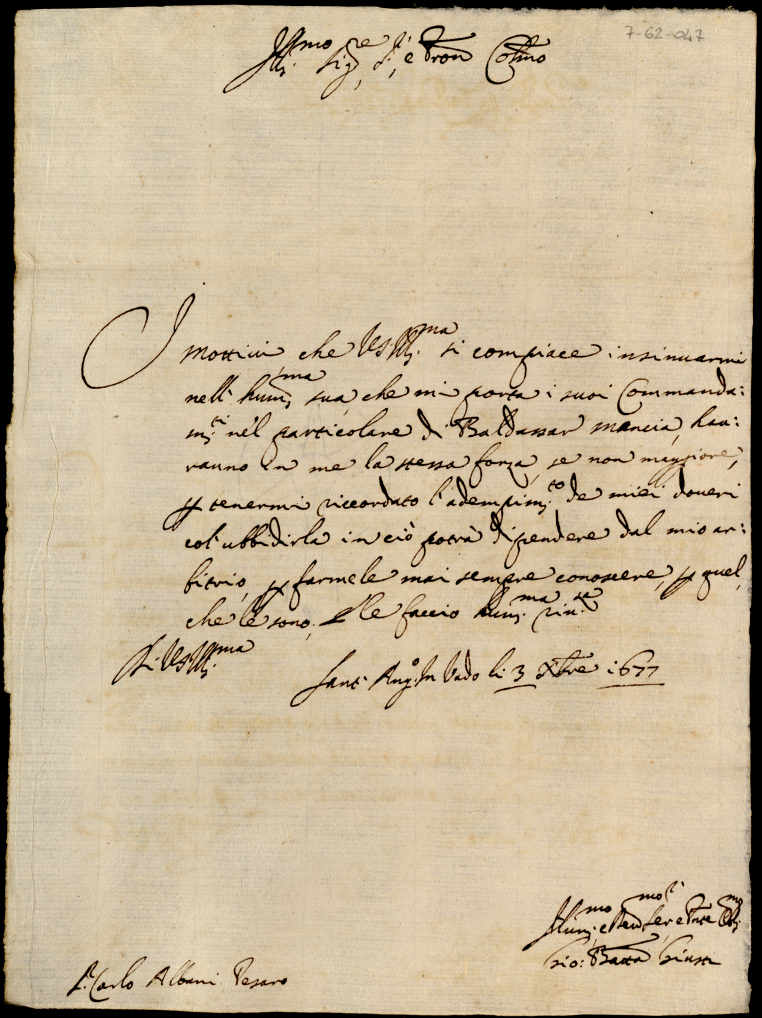 7-62-047
Ill.mo Sig.re e Pron Col.mo
I mottivi che VS Ill.ma si compiace insinuarmi
nell' hum.ma sua, che mi porta i suoi Commanda:
m.ti nel particolare di Baldassar Mancia, hau:
ranno in me la stessa forza, se non maggiore,
p tenermi riccordato l'adempim.to de miei doveri
col' ubbidirla in ciò potrà dipendere dal mio ar:
bitrio, p farmele mai sempre conoscere, p quel,
che le sono. E le faccio hum.ma riu.za
Di VS Ill.ma
Sant' Ang.o In Vado li 3 Xbre 1677
Hum.mo e Deu Ser e
Gio: Batta Giusti
S.r Carlo Albani Pesaro